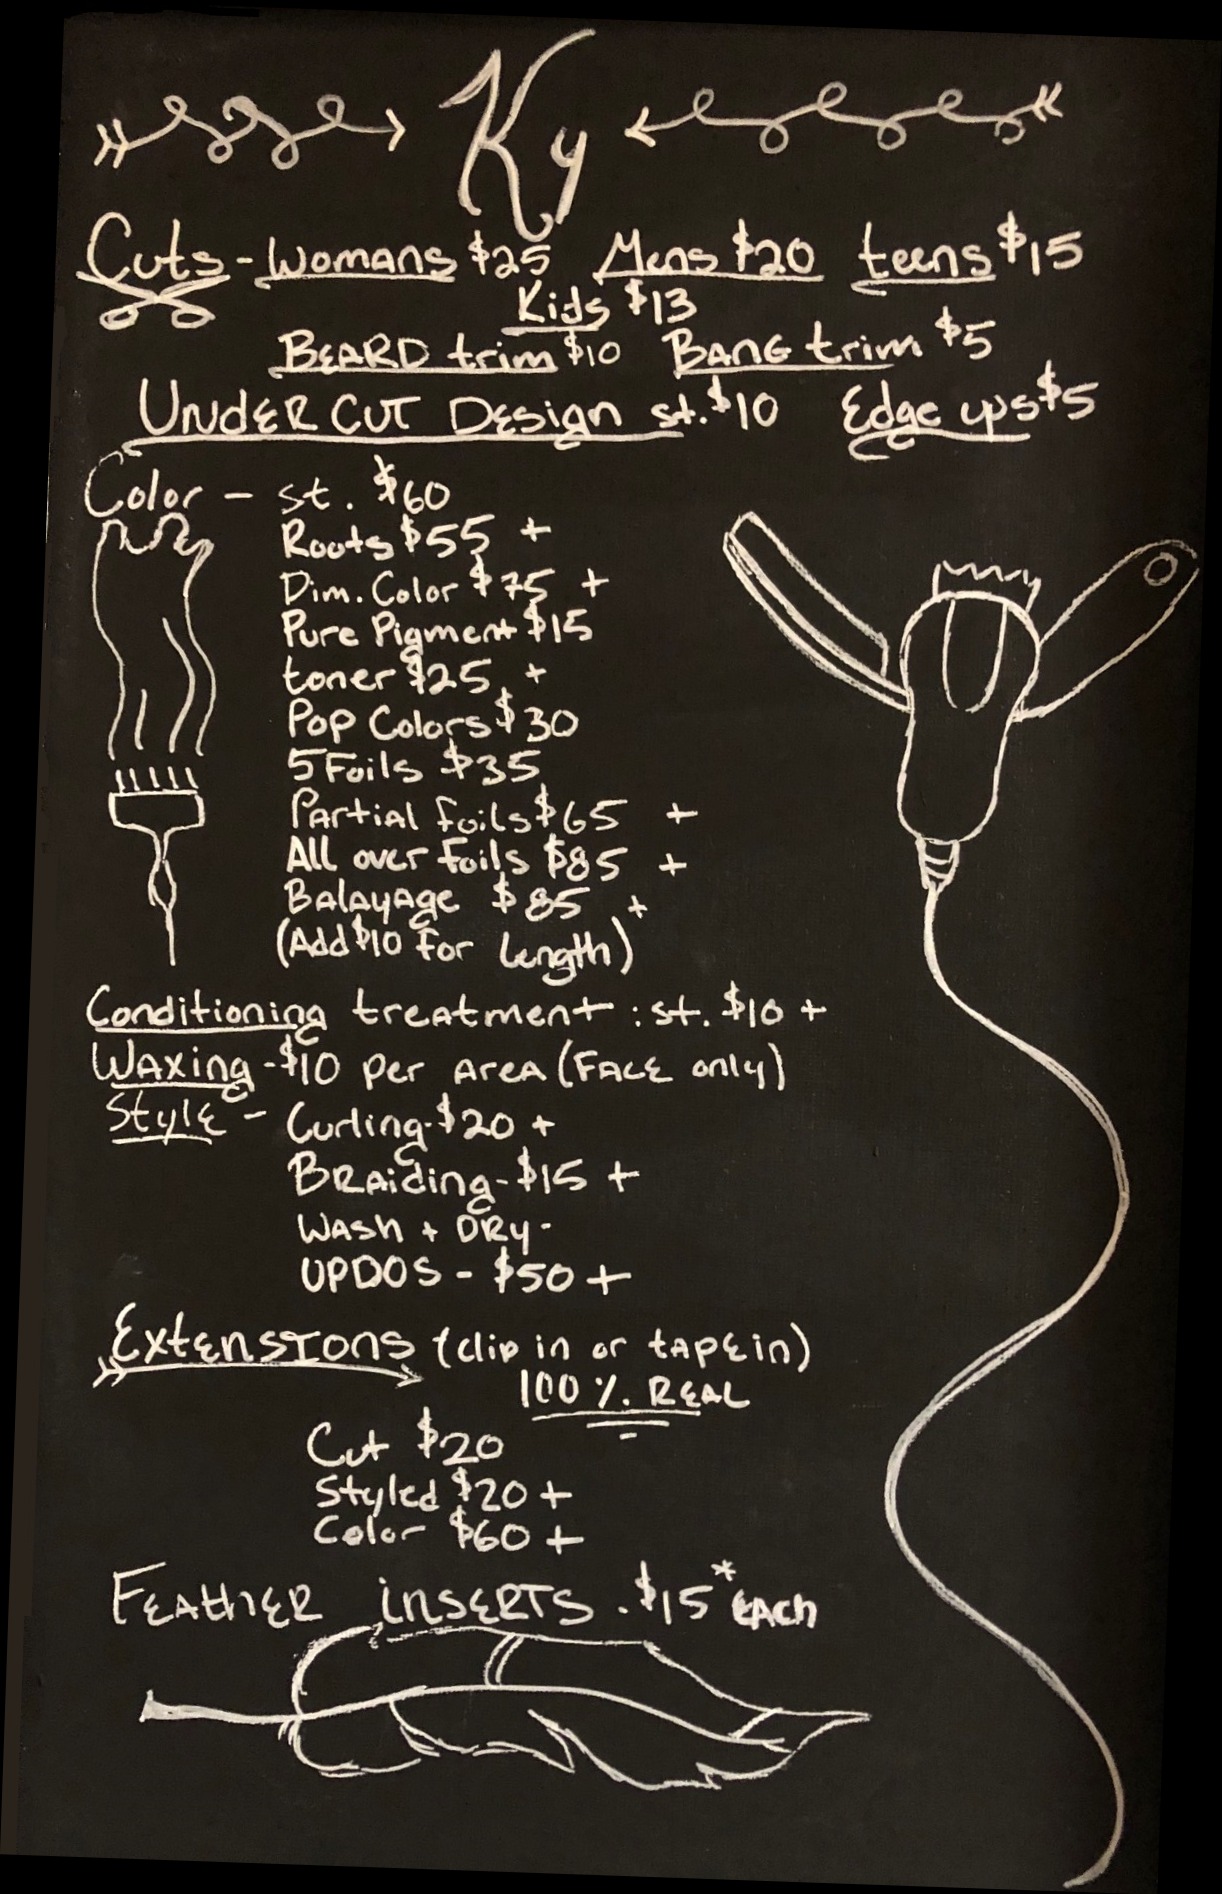 Ky
Cuts - Womans $25 Mens $20 teens $15
Kids $13
BEARD trim $10 BANG trim $5
UNDERCUT DESign st. $10 Edge ups $5
Color - st. $60
Roots $55 +
Dim. Color $75 +
Pure Pigment $15
toner $25 +
Pop Colors $30
5 Foils $35
Partial foils $65 +
All over foils $85 +
Balayage $85 +
(Add $10 for length)
Conditioning treatment : st. $10 +
WAXing - $10 per AREA (FACE only)
Style - Curling - $20 +
BRAiding - $15 +
WASh + DRy -
UPDOS - $50 +
EXTENSIONS (clip in or tAPE in)
100 % REAL
Cut $20
Styled $20 +
Color $60 +
FEATHER iNSERTS . $15 * EACh